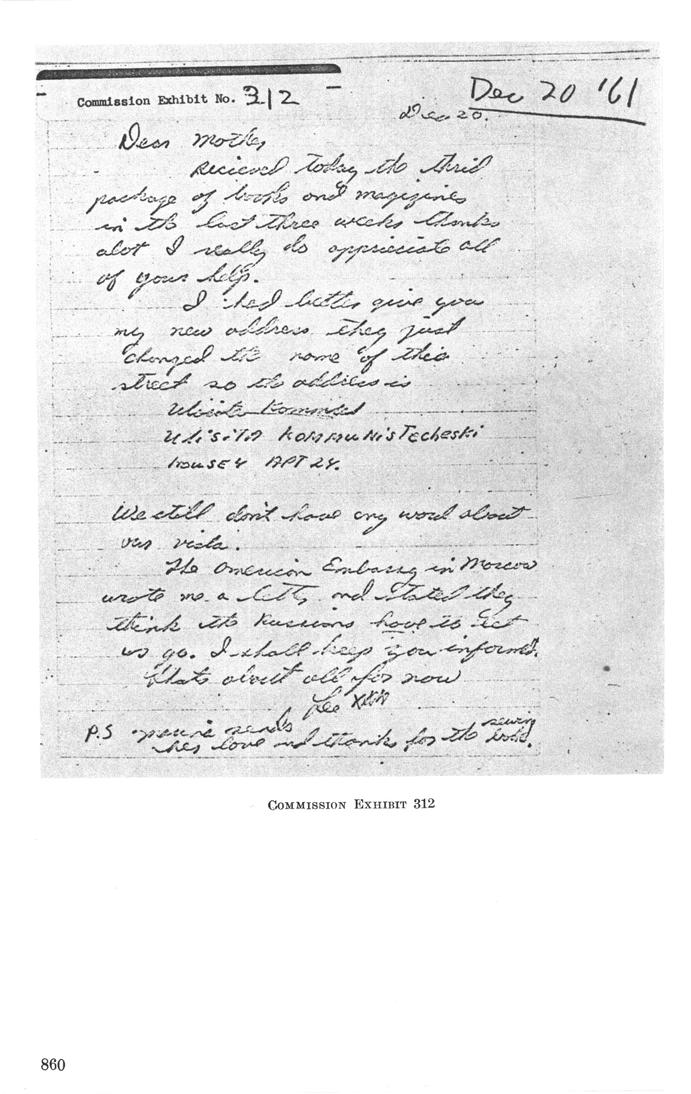 Commission Exhibit No. 312
Dec 20 '61
Dec 20.
Dear Mother,
Recieved today the thrid
package of books and magizines
in the last three weeks thanks
alot I really do appreciate all
of your help.
I had better give you
my new address they just
changed the name of this
street so the address is
Ulisita Kommunistecheski
House 4 APT 24.
We still don't have any word about
our vista.
The American Embassy in Moscow
wrote me a letter and stated they
think the Russians have to let
us go. I shall keep you informed.
thats about all for now
Lee XXXX
P.S Marina sends
her love and thanks for the sewing
COMMISSION EXHIBIT 312
860